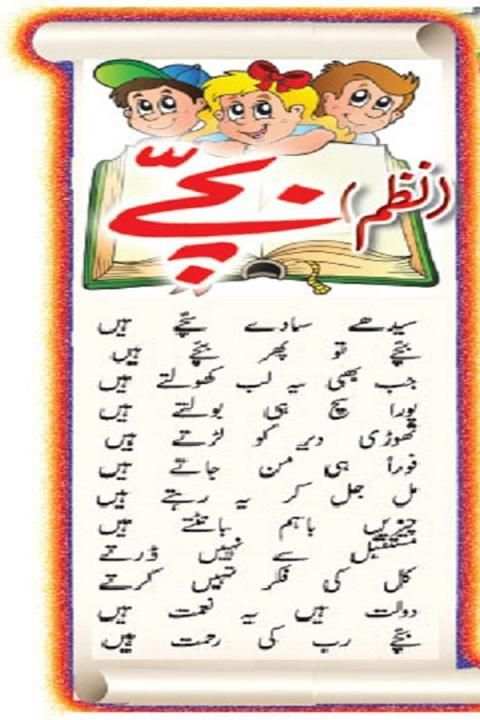 (نظم) بچّے
سیدھے سادے بچّے ہیں
بچّے تو پھر بچّے ہیں
جب بھی یہ لب کھولتے ہیں
پورا سچ ہی بولتے ہیں
تھوڑی دیر کو لڑتے ہیں
فوراً ہی من جاتے ہیں
مل جل کر یہ رہتے ہیں
چیزیں باہم بانٹتے ہیں
مستقبل سے نہیں ڈرتے
کل کی فکر نہیں کرتے
دولت ہیں یہ نعمت ہیں
بچّے رب کی رحمت ہیں